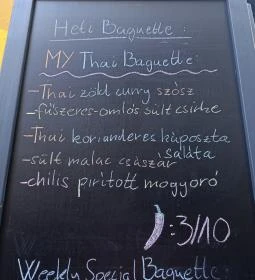 Heti Baguette:
MY Thai Baguette:
-Thai zöld curry szósz
-fűszeres-omlós sült csirke
-Thai korianderes káposzta
saláta
-sült malac császár
-chilis pirított mogyoró
:3/10
Weekly Special Baguette: